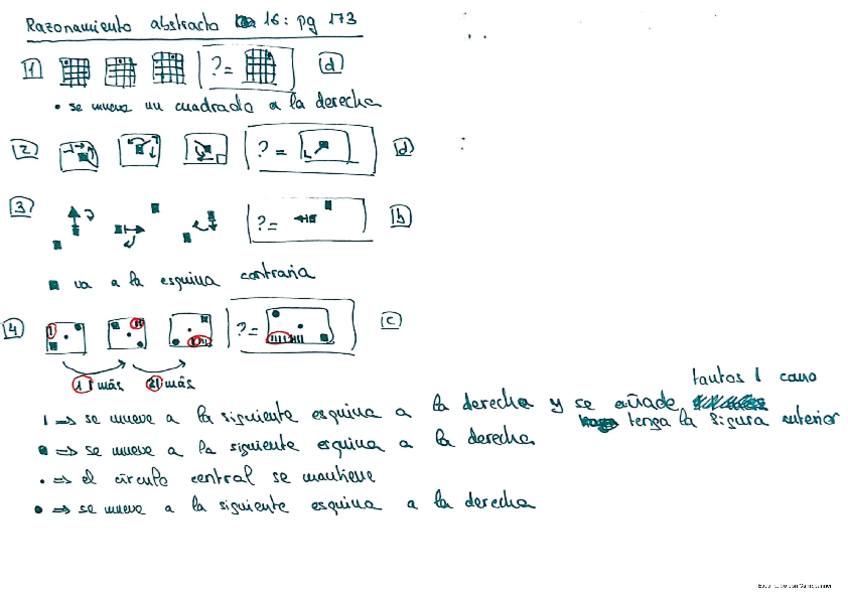 Razonamiento abstracto 16: pg 173
1 ?= d
• se mueve un cuadrado a la derecha
2 ? = d
3 ?= b
■ va a la esquina contraria
4 ?= c
1 | más 2 | más
tantos | como
| => se mueve a la siguiente esquina a la derecha y se añade
tenga la figura anterior
■ => se mueve a la siguiente esquina a la derecha
. => el círculo central se mantiene
• => se mueve a la siguiente esquina a la derecha